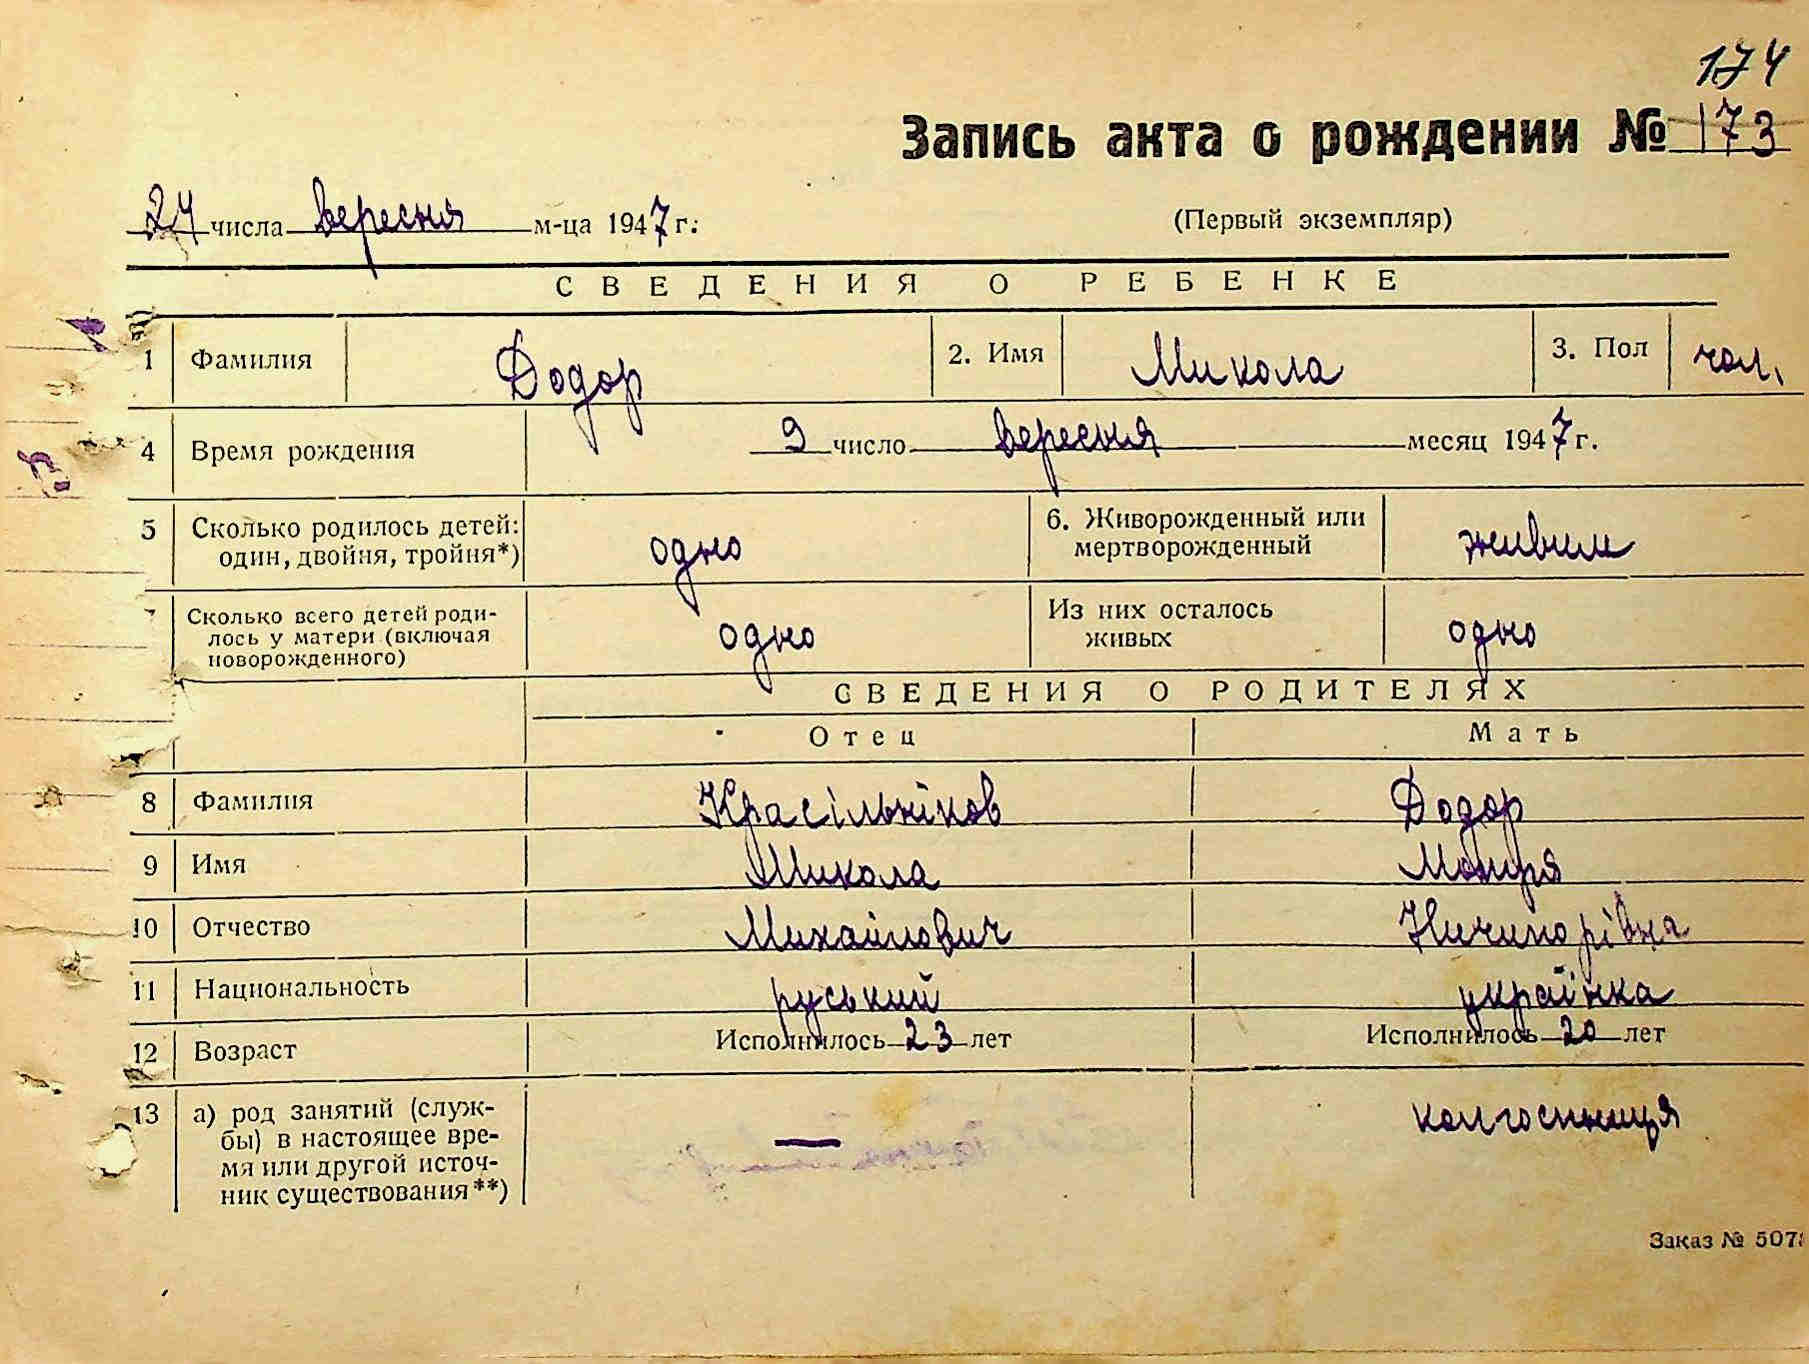 174
Запись акта о рождении № 173
24 числа вересня м-ца 1947 г.
(Первый экземпляр)
СВЕДЕНИЯ О РЕБЕНКЕ
1 Фамилия Додор 2. Имя Микола 3. Пол чол.
4 Время рождения 9 число вересня месяц 1947 г.
5 Сколько родилось детей: один, двойня, тройня*) одно 6. Живорожденный или мертворожденный живим
Сколько всего детей роди-
лось у матери (включая
новорожденного) одно Из них осталось живых одно
СВЕДЕНИЯ О РОДИТЕЛЯХ
Отец Мать
8 Фамилия Красільніков Додор
9 Имя Микола Мотря
10 Отчество Михайлович Ничипорівна
11 Национальность руський українка
12 Возраст Исполнилось 23 лет Исполнилось 20 лет
13 а) род занятий (служ-
бы) в настоящее вре-
мя или другой источ-
ник существования**) — колгоспниця
Заказ № 507